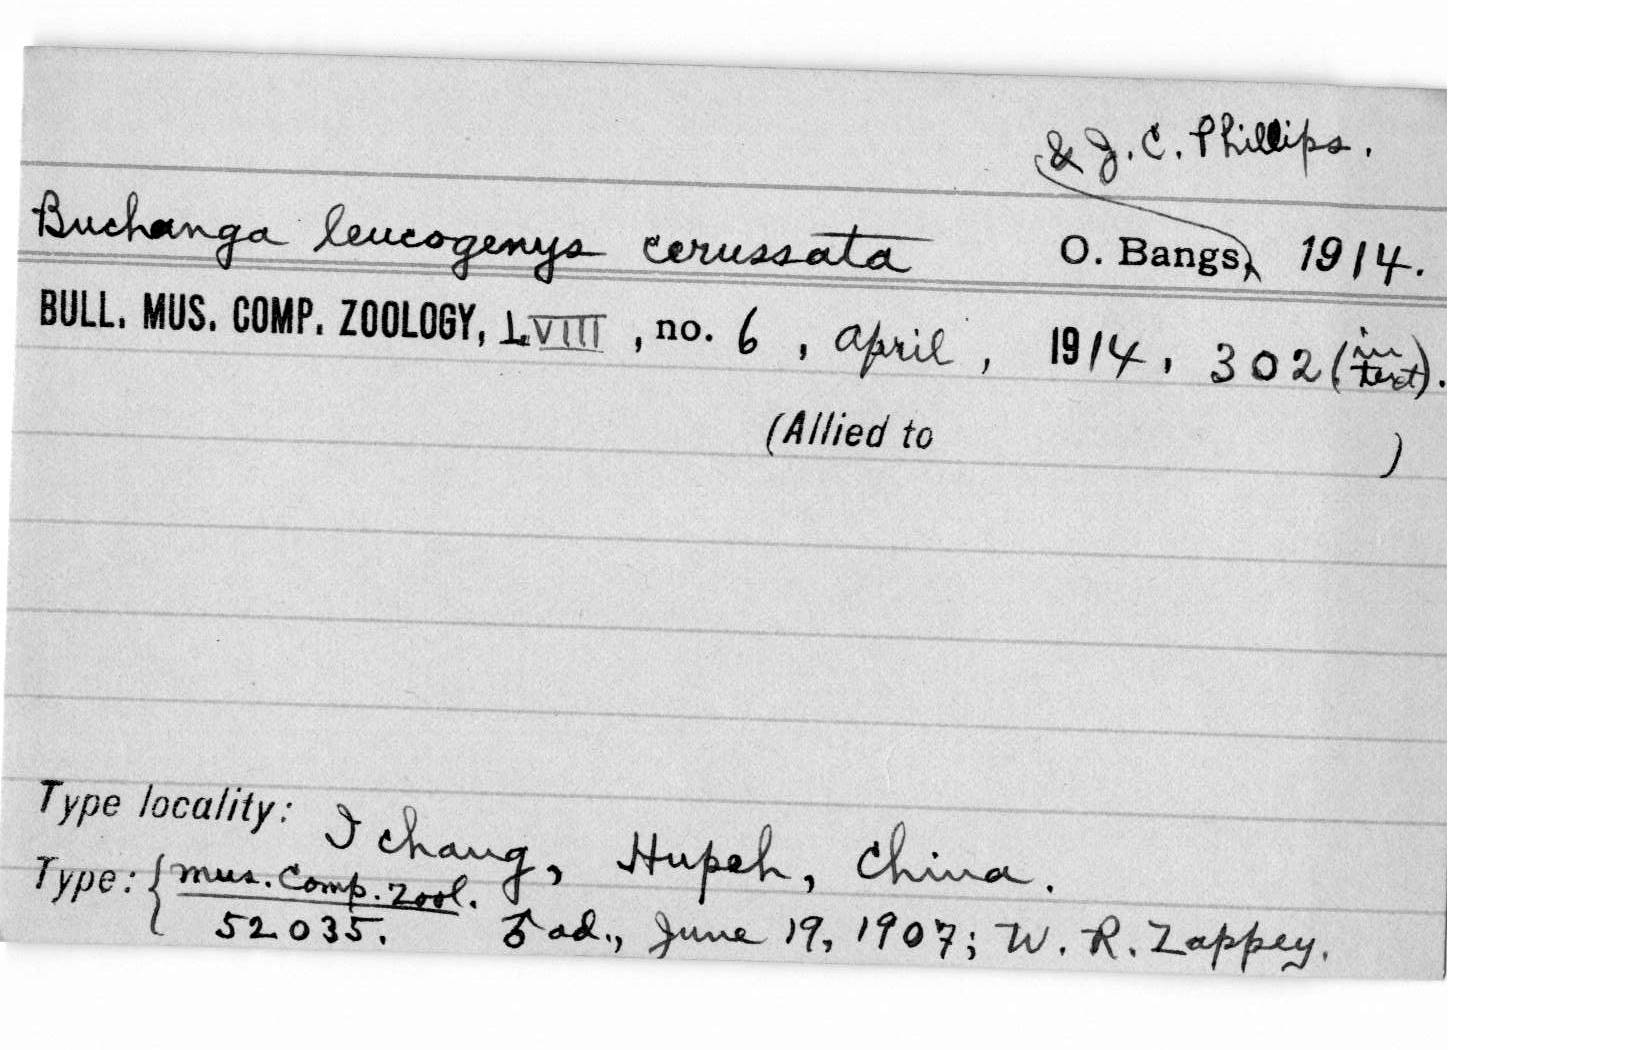 & J. C. Phillips.
Buchanga leucogenys cerussata O. Bangs, 1914.
BULL. MUS. COMP. ZOOLOGY, LVIII, no. 6, April, 1914, 302 (in text).
(Allied to )
Type locality: Ichang, Hupeh, China.
Type: { Mus. Comp. Zool.
52035. ♂ ad., June 19, 1907; W. R. Zappey.